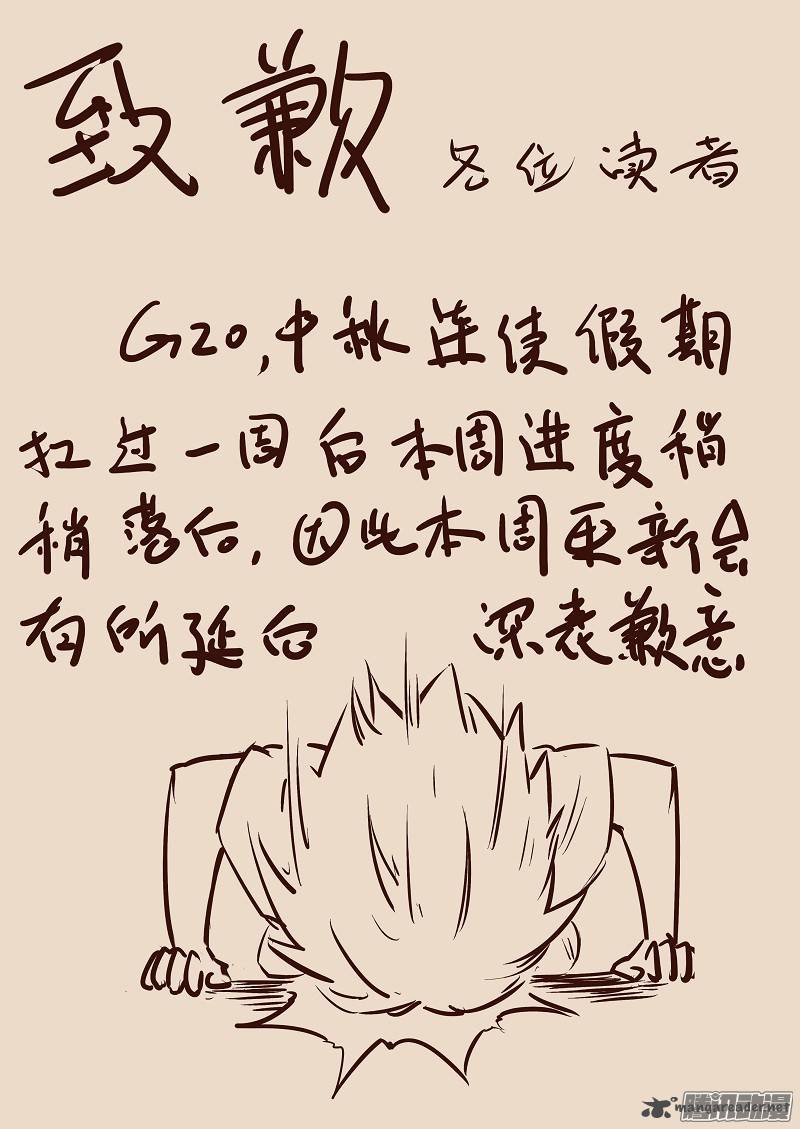 致歉 各位读者
G20,中秋连续假期
扛过一周后本周进度稍
稍落后,因此本周更新会
有所延后 深表歉意
腾讯动漫
mangareader.net